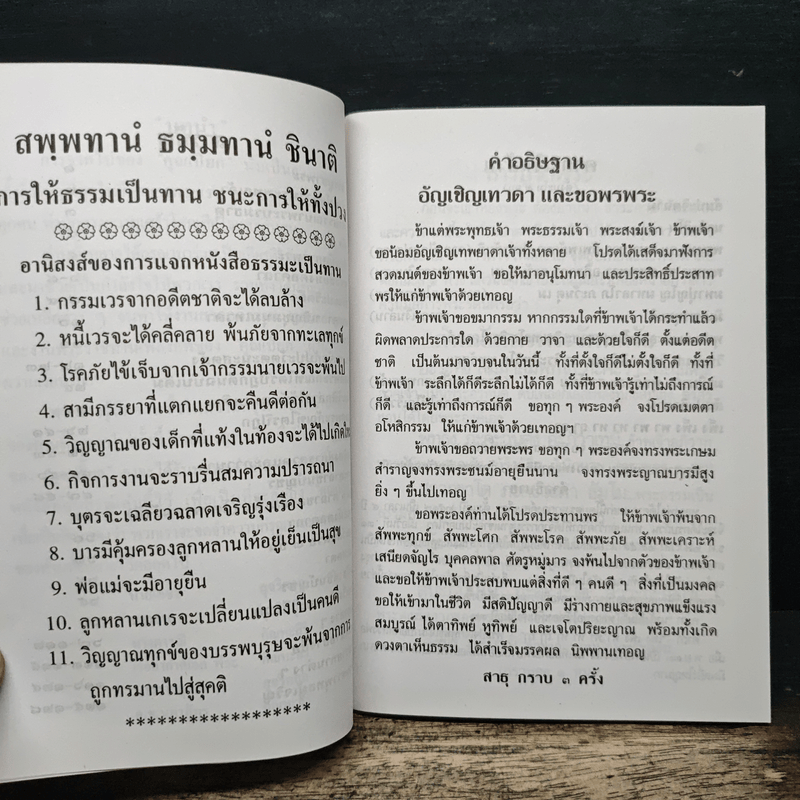 สพฺพทานํ ธมฺมทานํ ชินาติ
การให้ธรรมเป็นทาน ชนะการให้ทั้งปวง
อานิสงส์ของการแจกหนังสือธรรมะเป็นทาน
1. กรรมเวรจากอดีตชาติจะได้ลบล้าง
2. หนี้เวรจะได้คลี่คลาย พ้นภัยจากทะเลทุกข์
3. โรคภัยไข้เจ็บจากเจ้ากรรมนายเวรจะพ้นไป
4. สามีภรรยาที่แตกแยกจะคืนดีต่อกัน
5. วิญญาณของเด็กที่แท้งในท้องจะได้ไปเกิด
6. กิจการงานจะราบรื่นสมความปรารถนา
7. บุตรจะเฉลียวฉลาดเจริญรุ่งเรือง
8. บารมีคุ้มครองลูกหลานให้อยู่เย็นเป็นสุข
9. พ่อแม่จะมีอายุยืน
10. ลูกหลานเกเรจะเปลี่ยนแปลงเป็นคนดี
11. วิญญาณทุกข์ของบรรพบุรุษจะพ้นจากการ
ถูกทรมานไปสู่สุคติ
******************
คำอธิษฐาน
อัญเชิญเทวดา และขอพรพระ
ข้าแต่พระพุทธเจ้า พระธรรมเจ้า พระสงฆ์เจ้า ข้าพเจ้า
ขอน้อมอัญเชิญเทพยาดาเจ้าทั้งหลาย โปรดได้เสด็จมาฟังการ
สวดมนต์ของข้าพเจ้า ขอให้มาอนุโมทนา และประสิทธิ์ประสาท
พรให้แก่ข้าพเจ้าด้วยเทอญ
ข้าพเจ้าขอขมากรรม หากกรรมใดที่ข้าพเจ้าได้กระทำแล้ว
ผิดพลาดประการใด ด้วยกาย วาจา และด้วยใจก็ดี ตั้งแต่อดีต
ชาติ เป็นต้นมาจวบจนในวันนี้ ทั้งที่ตั้งใจก็ดีไม่ตั้งใจก็ดี ทั้งที่
ข้าพเจ้า ระลึกได้ก็ดีระลึกไม่ได้ก็ดี ทั้งที่ข้าพเจ้ารู้เท่าไม่ถึงการณ์
ก็ดี และรู้เท่าถึงการณ์ก็ดี ขอทุก ๆ พระองค์ จงโปรดเมตตา
อโหสิกรรม ให้แก่ข้าพเจ้าด้วยเทอญฯ
ข้าพเจ้าขอถวายพระพร ขอทุก ๆ พระองค์จงทรงพระเกษม
สำราญจงทรงพระชนม์อายุยืนนาน จงทรงพระญาณบารมีสูง
ยิ่ง ๆ ขึ้นไปเทอญ
ขอพระองค์ท่านได้โปรดประทานพร ให้ข้าพเจ้าพ้นจาก
สัพพะทุกข์ สัพพะโศก สัพพะโรค สัพพะภัย สัพพะเคราะห์
เสนียดจัญไร บุคคลพาล ศัตรูหมู่มาร จงพ้นไปจากตัวของข้าพเจ้า
และขอให้ข้าพเจ้าประสบพบแต่สิ่งที่ดี ๆ คนดี ๆ สิ่งที่เป็นมงคล
ขอให้เข้ามาในชีวิต มีสติปัญญาดี มีร่างกายและสุขภาพแข็งแรง
สมบูรณ์ ได้ตาทิพย์ หูทิพย์ และเจโตปริยะญาณ พร้อมทั้งเกิด
ดวงตาเห็นธรรม ได้สำเร็จมรรคผล นิพพานเทอญ
สาธุ กราบ ๓ ครั้ง